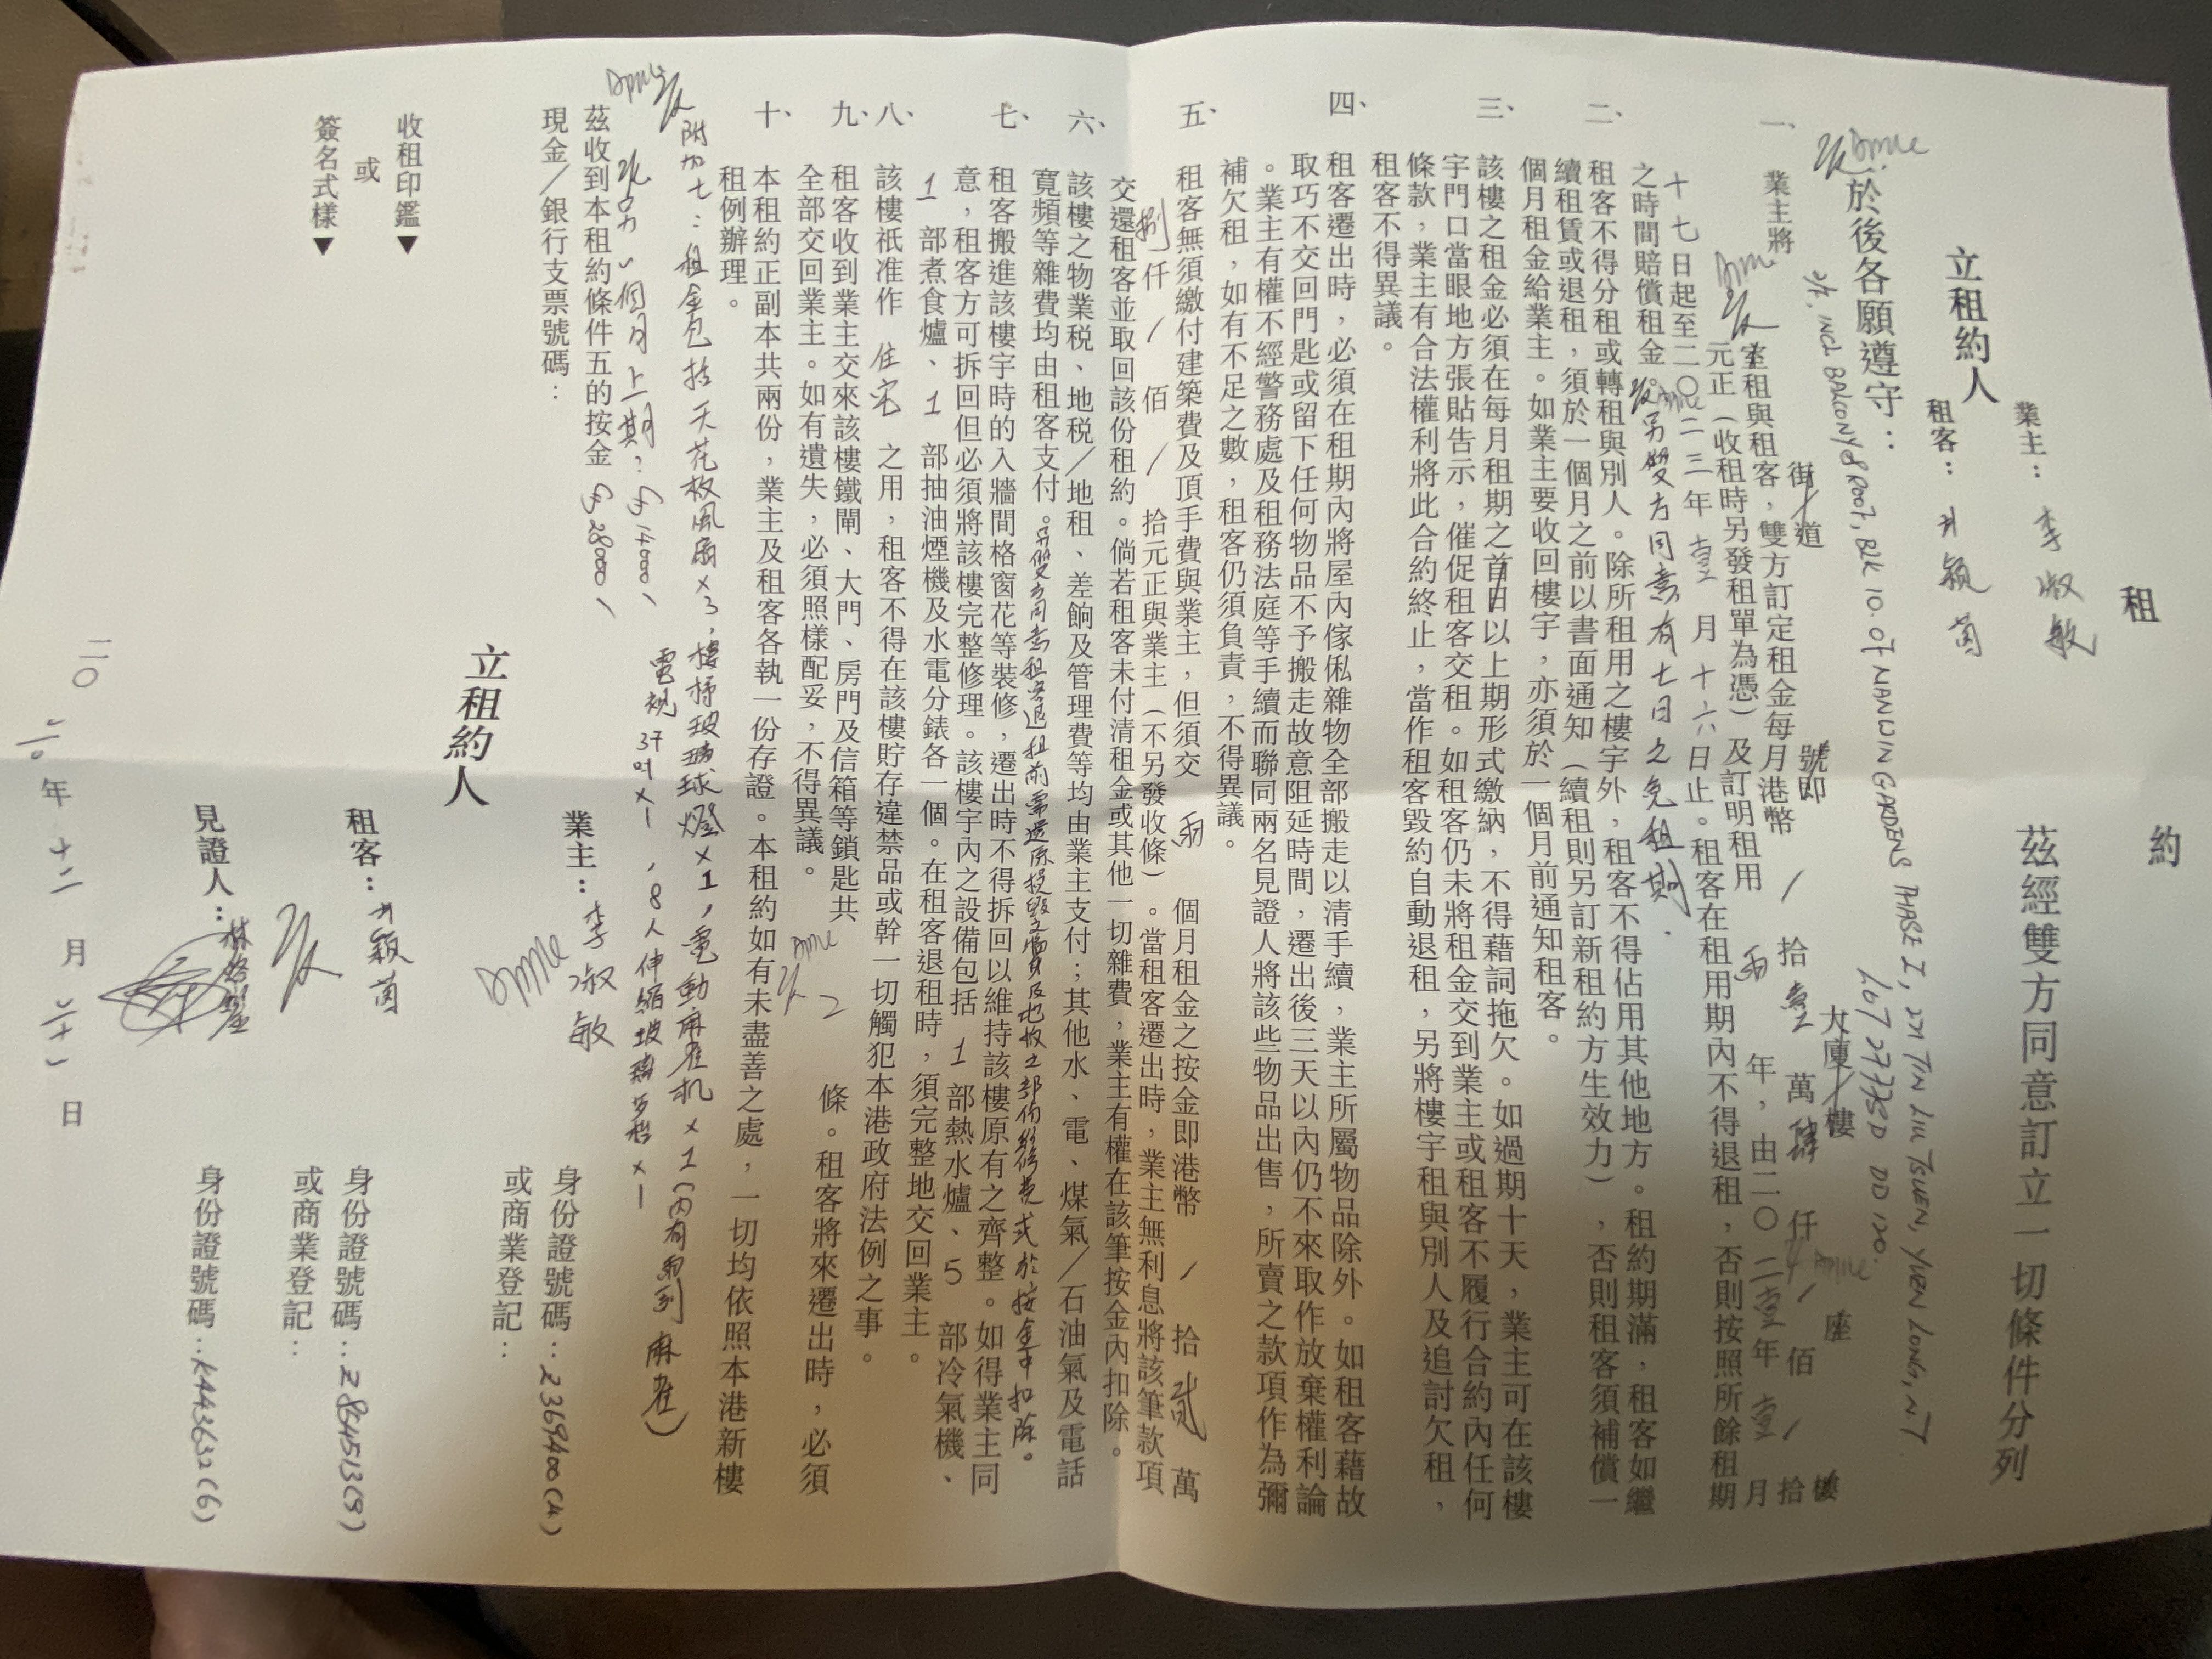 租 約
立租約人
業主：李淑敏
租客：
茲經雙方同意訂立一切條件分列
於後各願遵守：
2/F. INCL BALCONY & ROOF, BLK 10. OF NAN WIN GARDENS PHASE I, TIN LIU TSUEN, YUEN LONG, N.T
LOT 2777SD DD 120.
一、業主將 街/道 號即 大廈/樓 座 樓
室租與租客，雙方訂定租金每月港幣 / 拾壹萬肆仟 / 佰 / 拾
元正（收租時另發租單為憑）及訂明租用 兩 年，由二〇二壹年壹月
十七日起至二〇二三年壹月十六日止。租客在租用期內不得退租，否則按照所餘租期
之時間賠償租金。另雙方同意有七日之免租期.
二、租客不得分租或轉租與別人。除所租用之樓宇外，租客不得佔用其他地方。租約期滿，租客如繼
續租賃或退租，須於一個月之前以書面通知（續租則另訂新租約方生效力），否則租客須補償一
個月租金給業主。如業主要收回樓宇，亦須於一個月前通知租客。
三、該樓之租金必須在每月租期之首日以上期形式繳納，不得藉詞拖欠。如過期十天，業主可在該樓
宇門口當眼地方張貼告示，催促租客交租。如租客仍未將租金交到業主或租客不履行合約內任何
條款，業主有合法權利將此合約終止，當作租客毀約自動退租，另將樓宇租與別人及追討欠租，
租客不得異議。
四、租客遷出時，必須在租期內將屋內傢俬雜物全部搬走以清手續，業主所屬物品除外。如租客藉故
取巧不交回門匙或留下任何物品不予搬走故意阻延時間，遷出後三天以內仍不來取作放棄權利論
。業主有權不經警務處及租務法庭等手續而聯同兩名見證人將該些物品出售，所賣之款項作為彌
補欠租，如有不足之數，租客仍須負責，不得異議。
五、租客無須繳付建築費及頂手費與業主，但須交 兩 個月租金之按金即港幣 / 拾貳萬
捌仟 / 佰 / 拾元正與業主（不另發收條）。當租客遷出時，業主無利息將該筆款項
交還租客並取回該份租約。倘若租客未付清租金或其他一切雜費，業主有權在該筆按金內扣除。
六、該樓之物業税、地税／地租、差餉及管理費等均由業主支付；其他水、電、煤氣／石油氣及電話
寬頻等雜費均由租客支付。另雙方同意租客退租前需還原損毀之牆身及地板之部份維修完或於按金中扣除。
七、租客搬進該樓宇時的入牆間格窗花等裝修，遷出時不得拆回以維持該樓原有之齊整。如得業主同
意，租客方可拆回但必須將該樓完整修理。該樓宇內之設備包括 1 部熱水爐、5 部冷氣機、
1 部煮食爐、1 部抽油煙機及水電分錶各一個。在租客退租時，須完整地交回業主。
八、該樓祇准作 住宅 之用，租客不得在該樓貯存違禁品或幹一切觸犯本港政府法例之事。
九、租客收到業主交來該樓鐵閘、大門、房門及信箱等鎖匙共 2 條。租客將來遷出時，必須
全部交回業主。如有遺失，必須照樣配妥，不得異議。
十、本租約正副本共兩份，業主及租客各執一份存證。本租約如有未盡善之處，一切均依照本港新樓
租例辦理。
附加七：租金包括天花板風扇×3，樓梯玻璃球燈×1，電動麻雀机×1（內有兩副麻雀）
電視37吋×1，8人伸縮玻璃×1
個月上期，$14000
茲收到本租約條件五的按金 $28000
現金／銀行支票號碼：
立租約人
業主：李淑敏 身份證號碼：Z369400(4)
或商業登記：
收租印鑑▼
或
簽名式樣▼
租客： 身份證號碼：Z864513(9)
或商業登記：
見證人： 身份證號碼：K443632(6)
二〇二〇年十二月二十一日